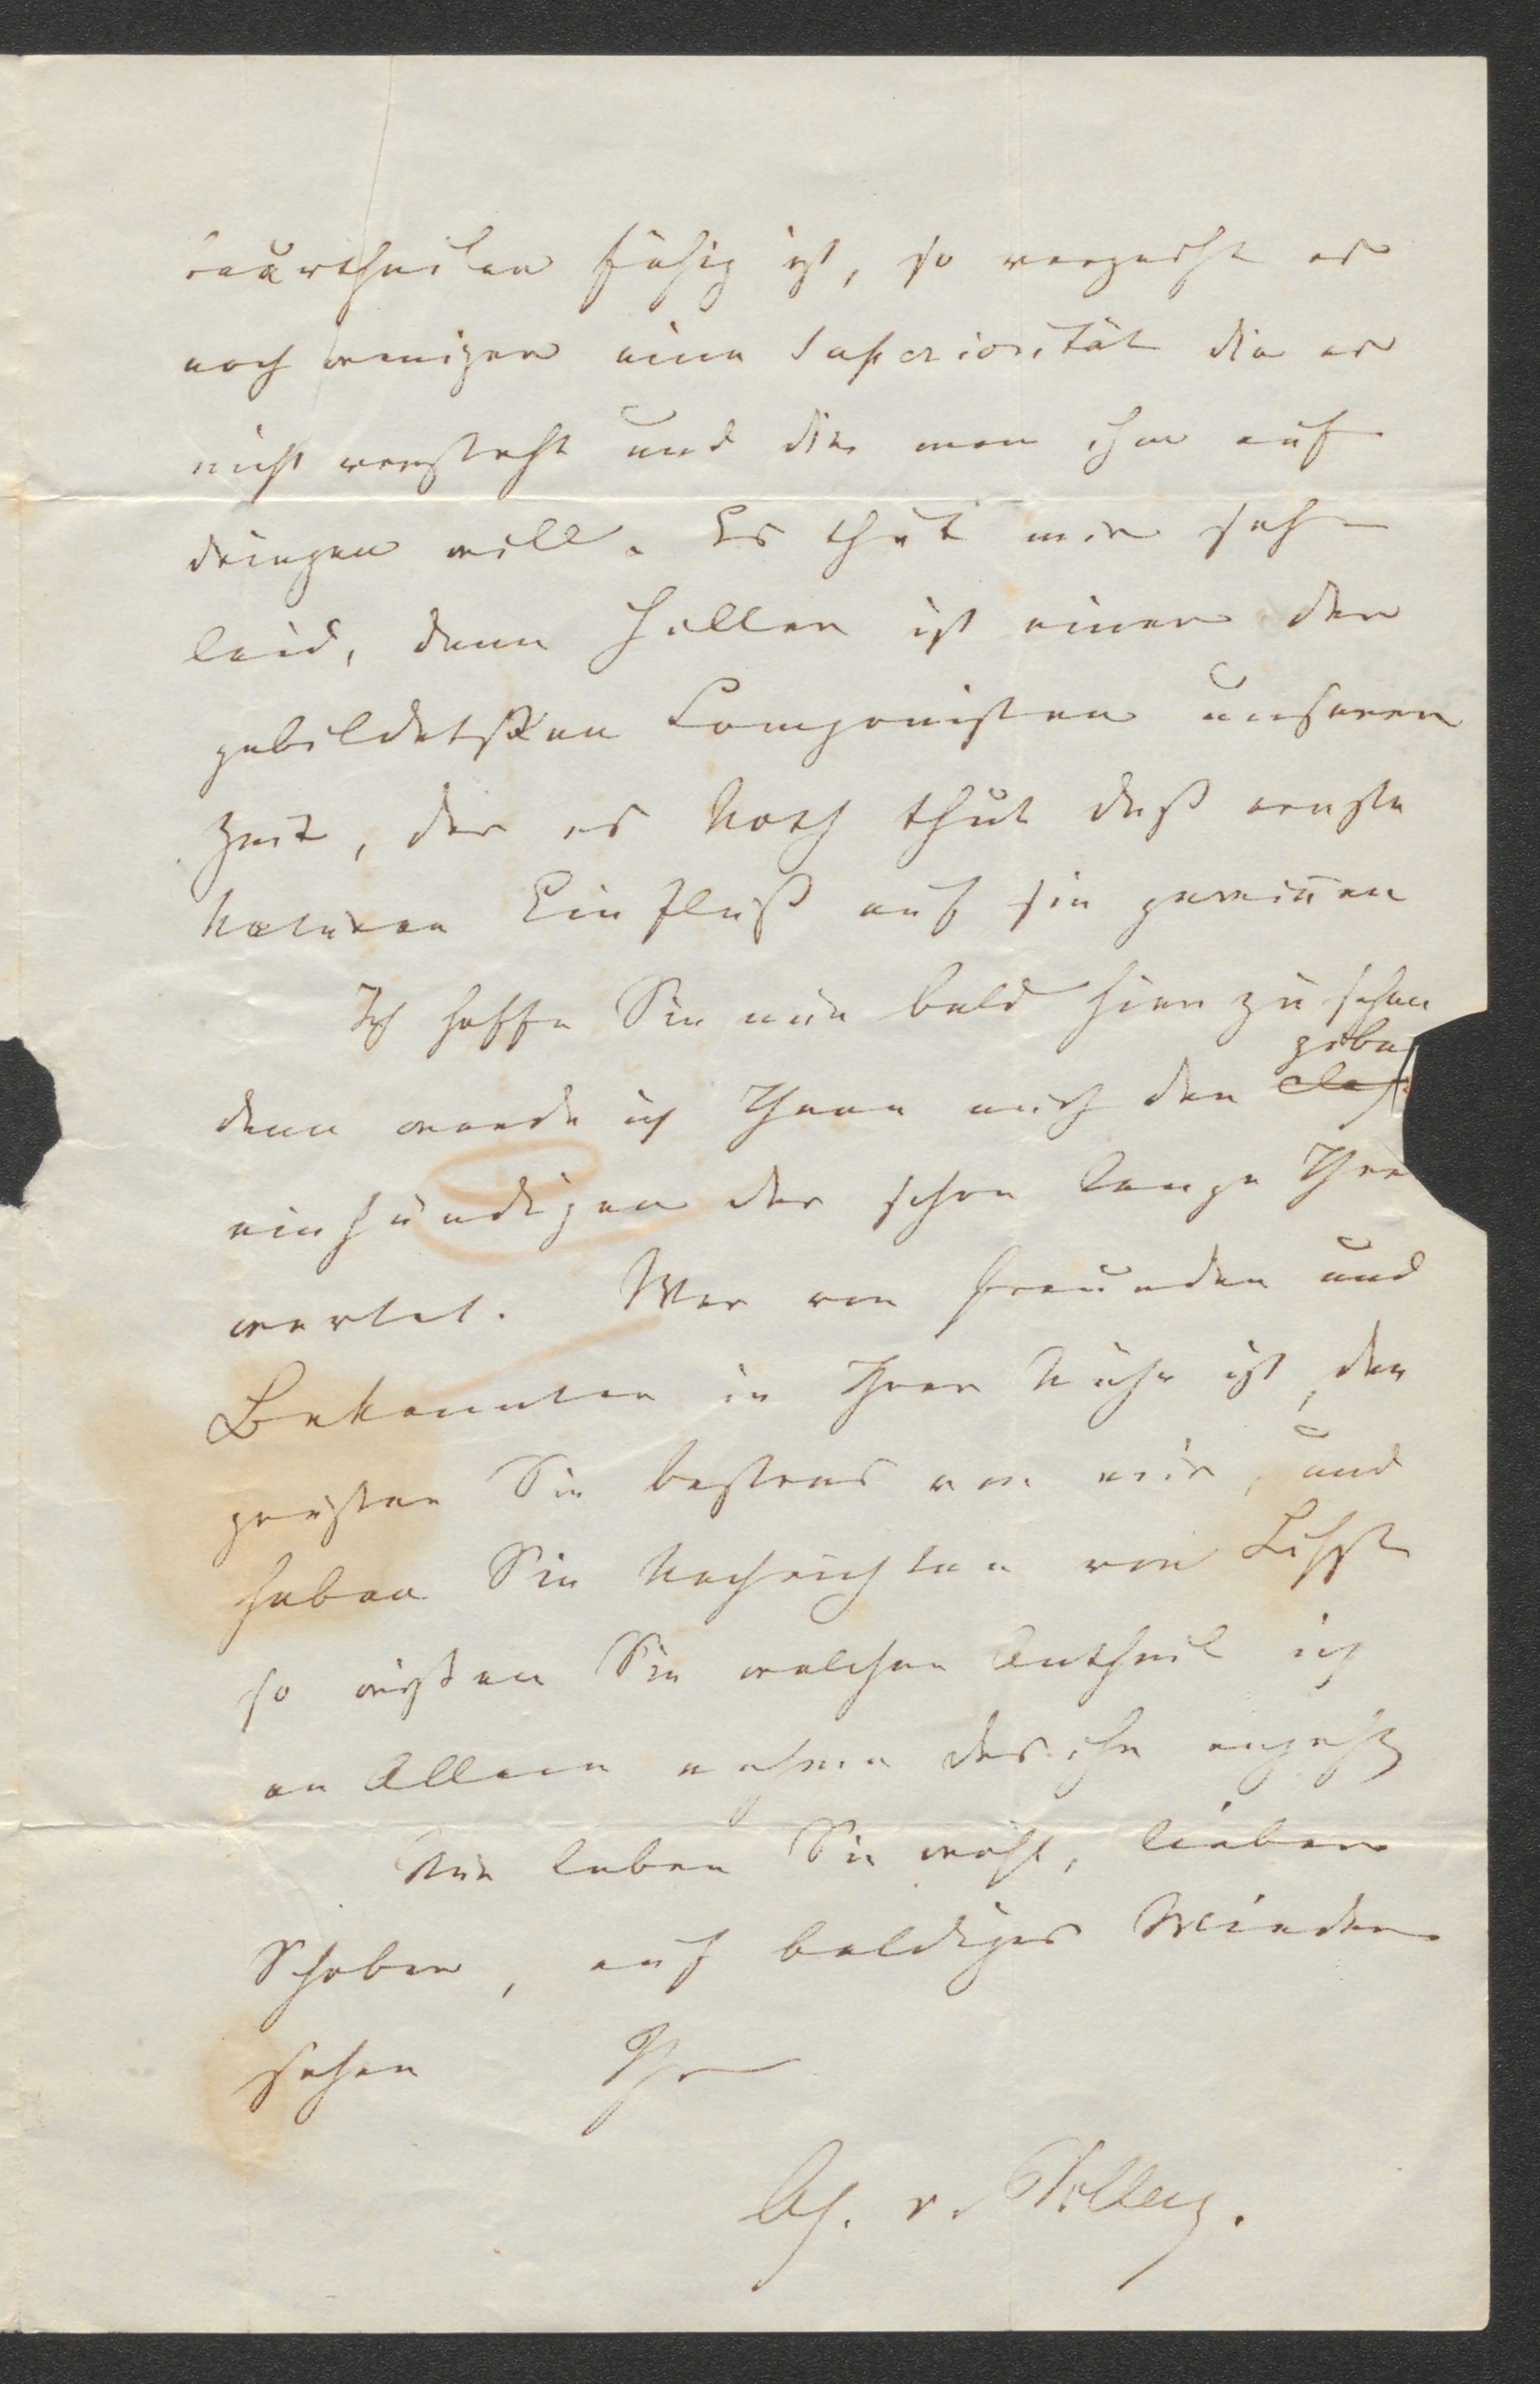 beurtheilen fähig ist, so verzeiht er
noch weniger eine Superiorität die er
nicht versteht und die man ihm auf
dringen will. Es thut mir sehr
leid, denn Hiller ist einer der
gebildetsten Componisten unserer
Zeit, der es Noth thut daß ernste
Naturen Einfluß auf sie gewinnen
Ich hoffe Sie nun bald hier zu sehen
dann werde ich Ihnen auch den
einhändigen der schon lange Ihrer
wartet. Wer von Freunden und
Bekannten in Ihrer Nähe ist, den
grüßen Sie bestens von mir, und
haben Sie Nachrichten von Lißt
so wißen Sie welchen Antheil ich
an Allem nehme das ihn angeht
Nun leben Sie wohl, lieber
Schober, auf baldiges Wieder
sehen Ihr
v.